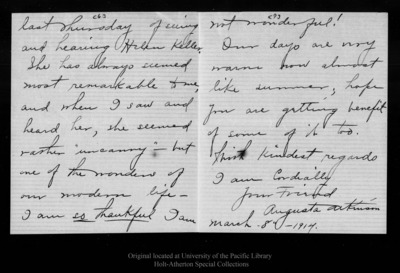 last Thursday of seeing
and hearing Helen Keller,
She has always seemed
most remarkable to me,
and when I saw and
heard her, she seemed
rather uncanny - but
one of the wonders of
our modern life -
I am so thankful I am
not wonderful!
Our days are very
warm now almost
like summer, hope
you are getting benefit
of some of it too.
With kindest regards
I am Cordially
Your Friend
Augusta Atkinson
March - 8th - 1914.
Original located at University of the Pacific Library
Holt-Atherton Special Collections